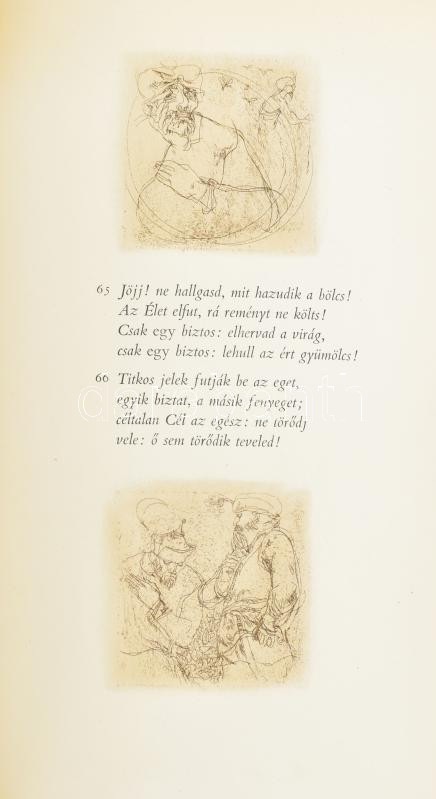 65 Jöjj! ne hallgasd, mit hazudik a bölcs!
Az Élet elfut, rá reményt ne költs!
Csak egy biztos: elhervad a virág,
csak egy biztos: lehull az ért gyümölcs!
66 Titkos jelek futják be az eget,
egyik biztat, a másik fenyeget;
céltalan Cél az egész: ne törődj
vele: ő sem törődik teveled!